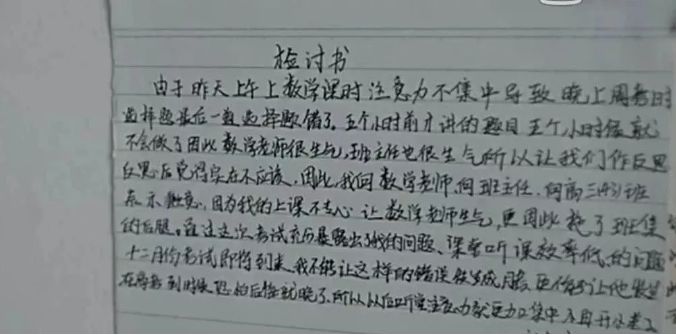 检讨书
由于昨天上午上数学课时注意力不集中导致晚上周考时
选择题最后一道选择题错了。五个小时前才讲的题目五个小时后就
不会做了因此数学老师很生气,班主任也很生气所以让我们作反思
反思后觉得实在不应该。因此,我向数学老师、向班主任、向高三班
表示歉意。因为我的上课不专心让数学老师生气,更因此拖了班集体
的后腿。通过这次考试充分暴露出了我的问题、课堂听课效率低的问题
十二月份考试即将到来,我不能让这样的错误
到时候恐怕后悔就晚了。所以从以后听课注意力就更加集中不再开小差了